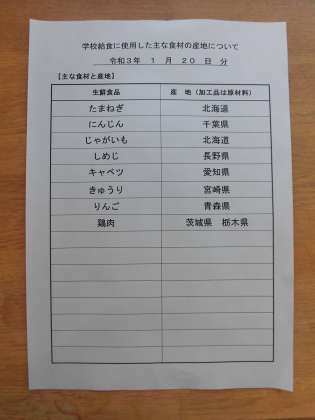 学校給食に使用した主な食材の産地について
令和3年 1 月 20 日 分
【主な食材と産地】
生鮮食品 産 地（加工品は原材料）
たまねぎ 北海道
にんじん 千葉県
じゃがいも 北海道
しめじ 長野県
キャベツ 愛知県
きゅうり 宮崎県
りんご 青森県
鶏肉 茨城県 栃木県